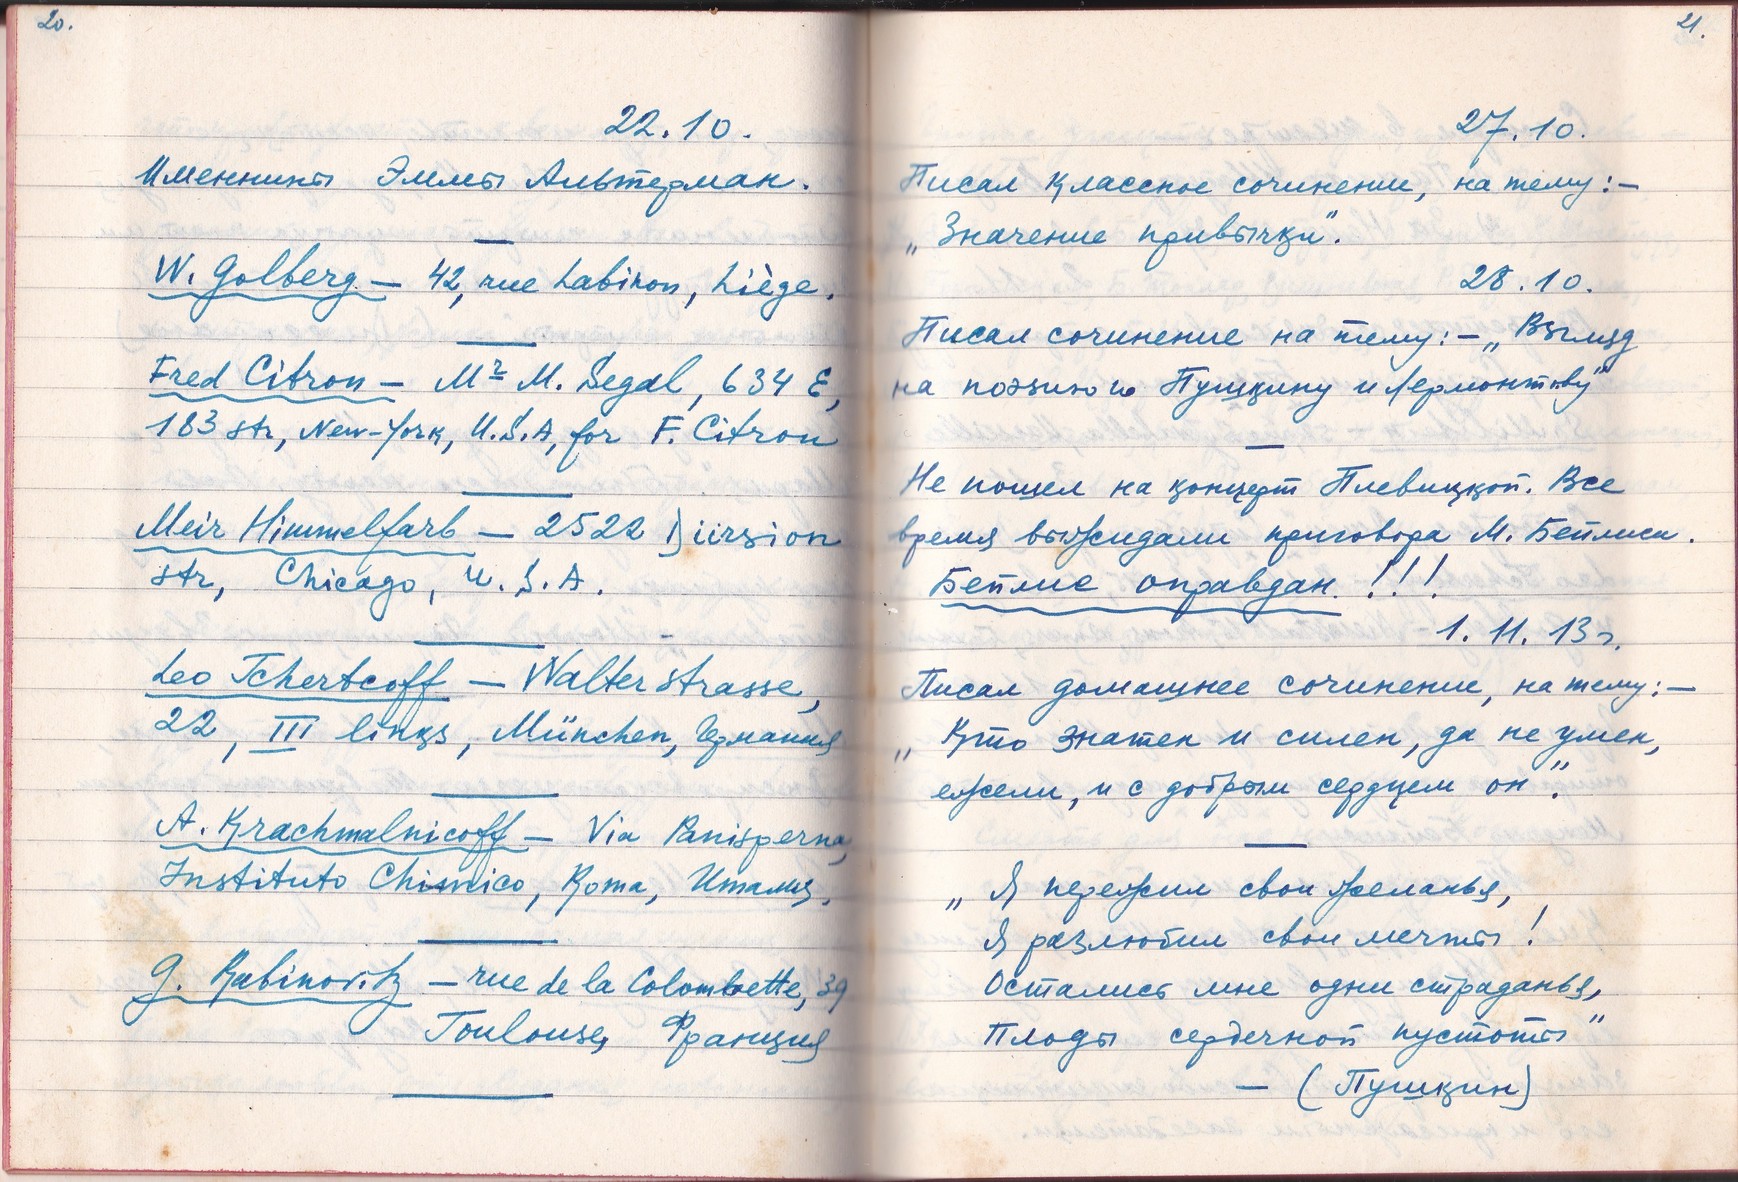 20.
22.10.
Именины Эммы Альтерман.
W. Golberg — 42, rue Labinon, Liège.
Fred Citron — Mr M. Segal, 634 E,
183 str, New-York, U.S.A, for F. Citron
Meir Himmelfarb — 2522
str, Chicago, U.S.A.
Leo Tchertcoff — Walterstrasse,
22, III links, München, Германия
A. Krachmalnicoff — Via Panisperna,
Instituto Chimico, Roma, Италия.
G. Rabinovitz — rue de la Colombette, 39
Toulouse, Франция
21.
27.10.
Писал классное сочинение, на тему:—
„Значение привычки".
28.10.
Писал сочинение на тему:—„Взгляд
на поэзию Пушкину и Лермонтову"
Не пошел на концерт Плевицкой. Все
время выжидали приговора М. Бейлиса.
Бейлис оправдан!!!
1.11.13г.
Писал домашнее сочинение, на тему:—
„Кто знатен и силен, да не умен,
ежели, и с добрым сердцем он".
„Я пережил свои желанья,
Я разлюбил свои мечты!
Остались мне одни страданья,
Плоды сердечной пустоты"
— (Пушкин)